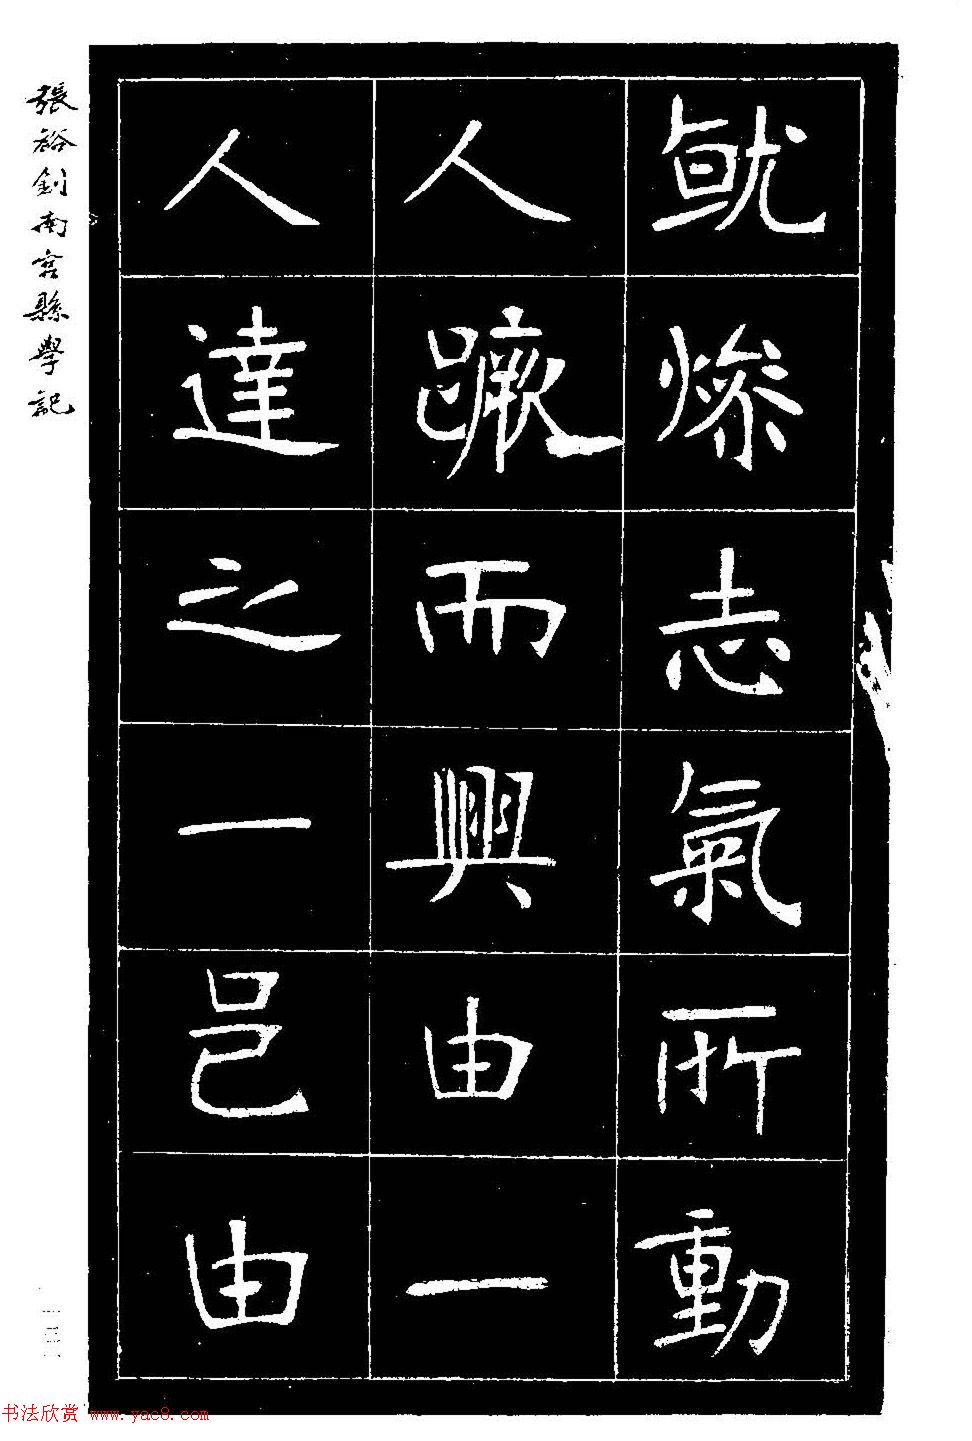 張裕釗南宮縣學記
就燥志氣所動
人蹶而興由一
人達之一邑由
书法欣赏 www.yac8.com